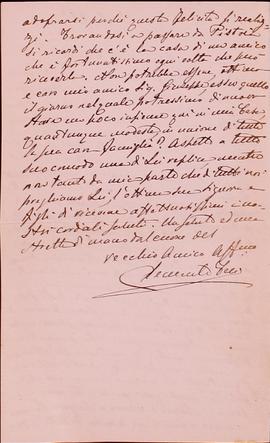 adoprarsi perchè questa felicità si realiz-
zi. Trovandosi a passare da Pistoia
si ricordi che c'è la casa di un amico
che è fortunatissimo ogni volta che può
riceverla. Non potrebbe essere
con mio amico Sig. Giuseppe esser quello
il giorno nel quale potressimo di nuovo
stare un poco insieme qui in mia casa
quantunque modesta in unione di tutta
la sua cara famiglia? Aspetto a tutto
suo comodo una di Lei replica mentre
non tanto da mia parte che di tutti noi
preghiamo Lei, l'ottima sua Signora e
figli di ricevere affettuosissimi i no-
stri cordiali saluti. Un saluto ed una
stretta di mano dal cuore del
vecchio Amico Affmo
Clemente